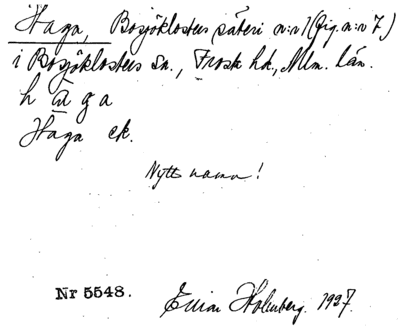 Haga, Bosjöklosters säteri n:r 1 (fig. n:r 7)
i Bosjöklosters sn., Frosta hd., Mlm. län.
h ā g a
Haga ek.
Nytt namn!
Nr 5548. Elian Holmberg. 1927.